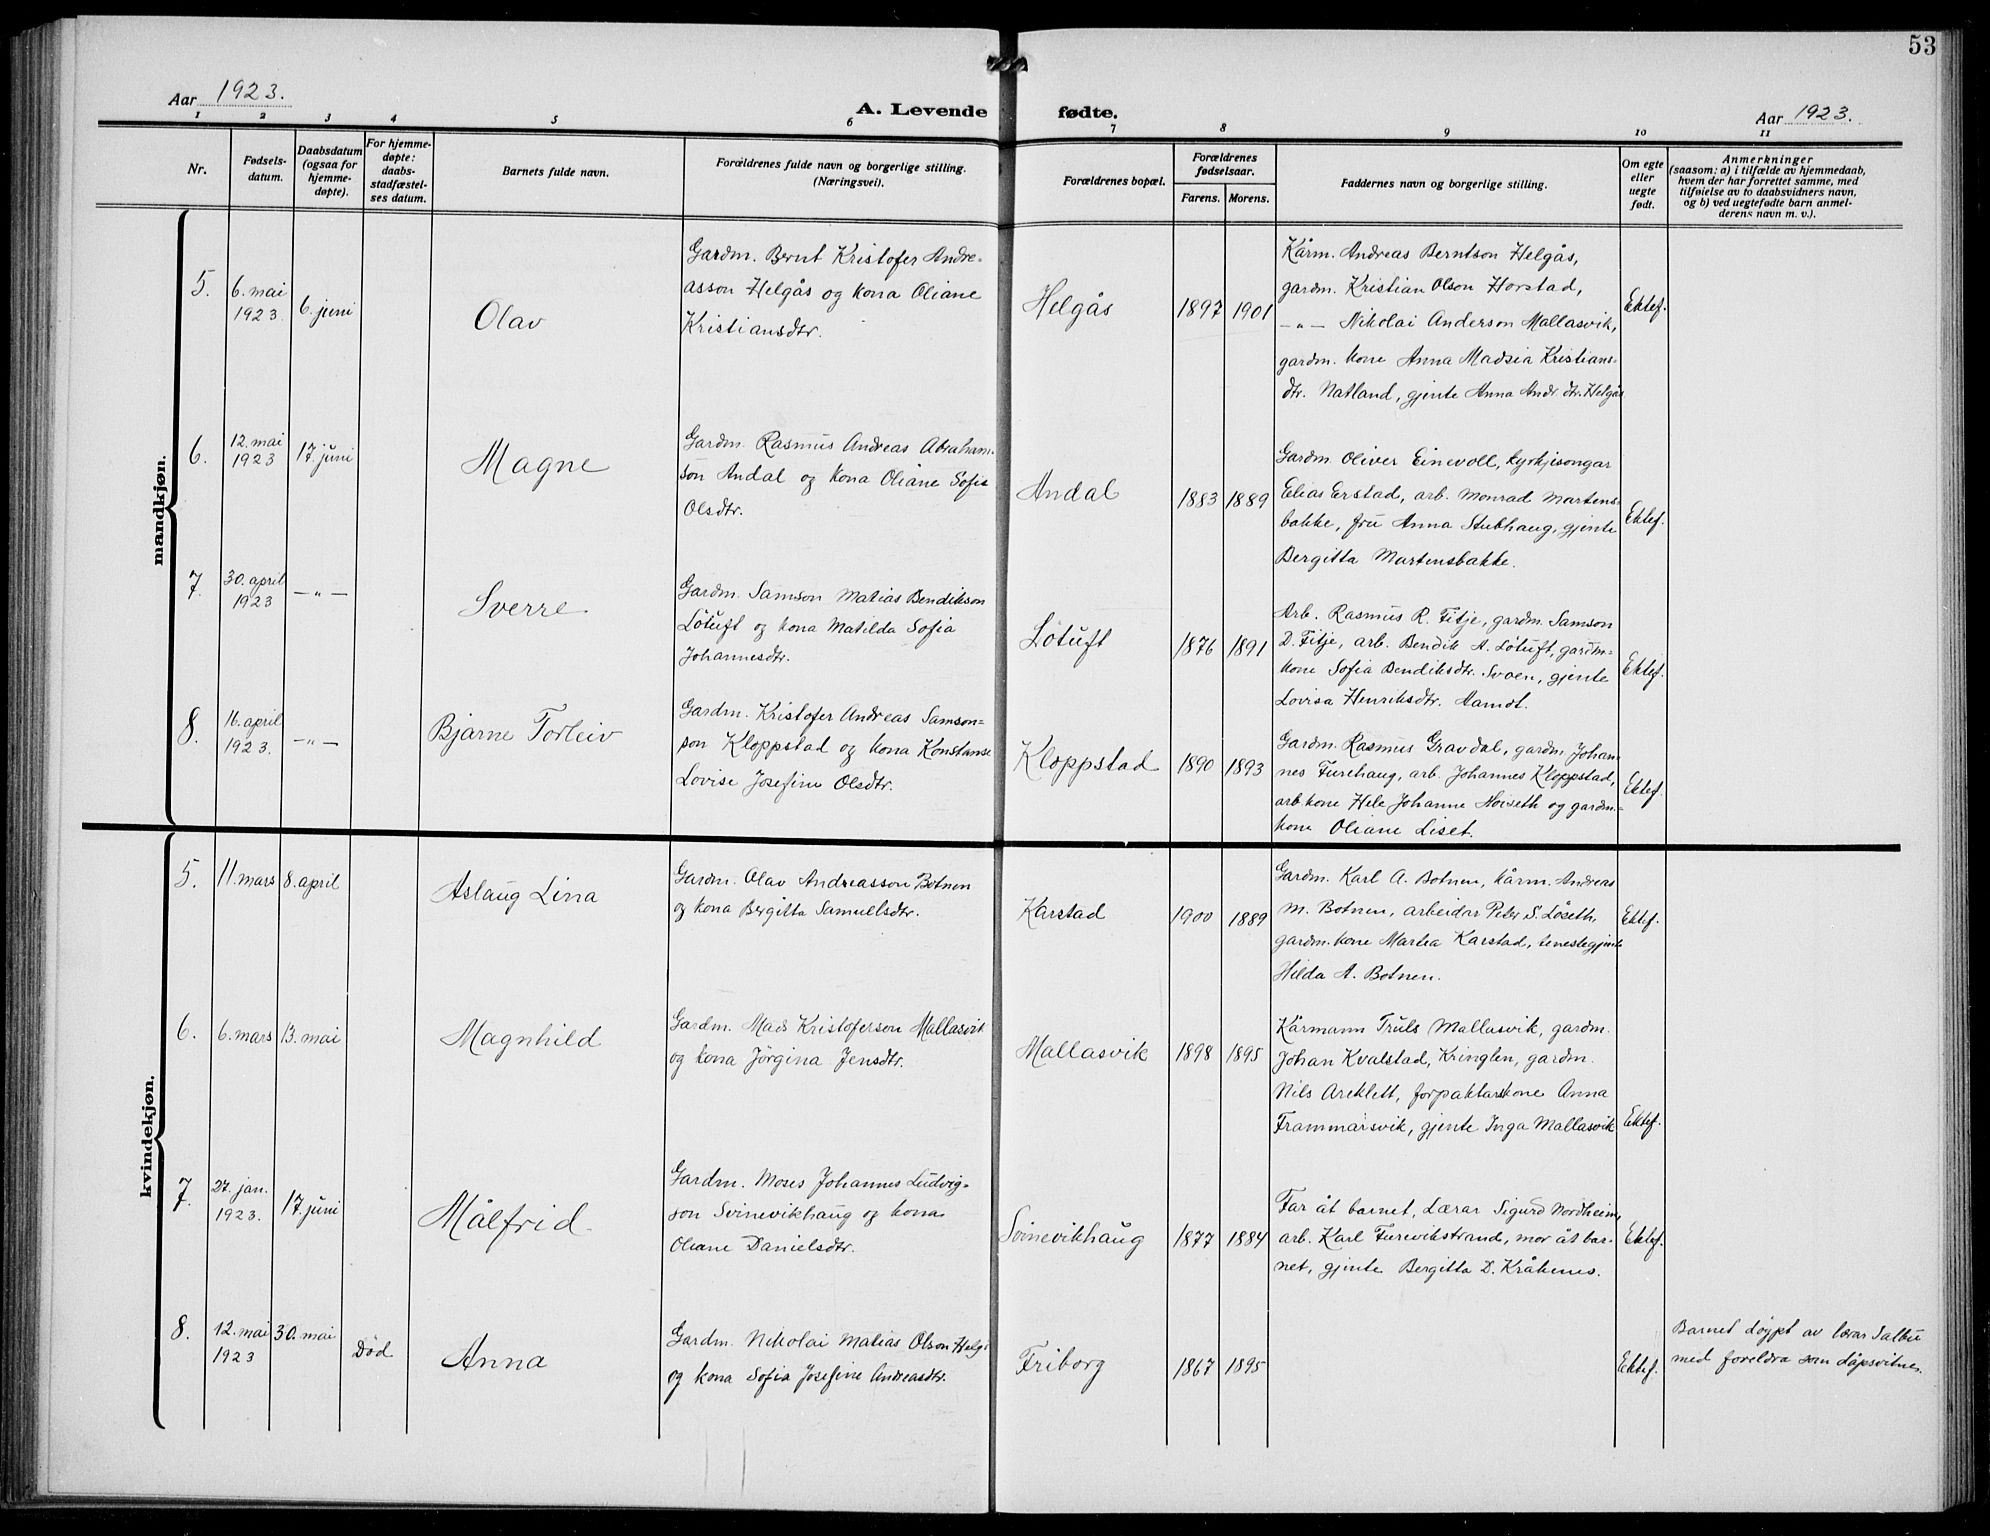 53
Aar 1923.
A. Levende fødte.
Aar 1923.
1 2 3 4 5 6 7 8 9 10 11
Nr.
Fødsels-
datum.
Daabsdatum
(ogsaa for
hjemme-
døpte).
For hjemme-
døpte:
daabs-
stadfæstel-
ses datum.
Barnets fulde navn.
Forældrenes fulde navn og borgerlige stilling.
(Næringsvei).
Forældrenes bopæl.
Forældrenes
fødselsaar.
Farens. Morens.
Faddernes navn og borgerlige stilling.
Om egte
eller
uegte
født.
Anmerkninger
(saasom: a) i tilfælde av hjemmedaab,
hvem der har forrettet samme, med
tilføielse av to daabsvidners navn,
og b) ved uegtefødte barn anmel-
derens navn m. v.).
mandkjøn.
5.
6. mai
1923.
6. juni
Olav
Gardm. Bernt Kristofer Andre-
asson Helgås og kona Oliane
Kristiansdtr.
Helgås
1897 1901
Kårm. Andreas Berntson Helgås,
gardm. Kristian Olson Horstad,
— „ — Nikolai Anderson Mallasvik,
gardm. kone Anna Madsia Kristians-
dtr. Natland, gjente Anna Andr.dtr. Helgås
Ektef.
6.
12. mai
1923
17. juni
Magne
Gardm. Rasmus Andreas Abraham-
son Andal og kona Oliane Sofie
Olsdtr.
Andal
1883 1889
Gardm. Oliver Einevoll, kyrkjesongar
Elias Erstad, arb. Monrad Martens-
bakke, fru Anna Stubhaug, gjente
Bergitta Martensbakke.
Ektef.
7.
30. april
1923
— „ —
Sverre
Gardm. Samson Matias Bendikson
Løtuft og kona Matilda Sofia
Johannesdtr.
Løtuft
1876 1891
Arb. Rasmus R. Fitje, gardm. Samson
D. Fitje, arb. Bendik A. Løtuft, gardm-
kone Sofia Bendiksdtr. Svoen, gjente
Lovisa Henriksdtr. Aamot.
Ektef.
8.
16. april
1923.
— „ —
Bjarne Torleiv
Gardm. Kristofer Andreas Samson-
son Kloppstad og kona Konstanse
Lovise Josefine Olsdtr.
Kloppstad
1890 1893
Gardm. Rasmus Gravdal, gardm. Johan-
nes Furehaug, arb. Johannes Kloppstad,
arb. kone Hele Johanne Høiseth og gardm-
kone Oliane Liset.
Ektef.
kvindekjøn.
5.
11. mars
8. april
Aslaug Lina
Gardm. Olav Andreasson Botnen
og kona Bergitta Samuelsdtr.
Karstad
1900 1889
Gardm. Karl A. Botnen, kårm. Andreas
M. Botnen, arbeidar Peter S. Løseth,
gardm. kone Martea Karstad, tenestegjente
Hilda A. Botnen.
Ektef.
6.
6. mars
13. mai
Magnhild
Gardm. Mads Kristoferson Mallasvik
og kona Jørgina Jensdtr.
Mallasvik
1898 1895
Kårmann Truls Mallasvik, gardm.
Johan Kvalstad, Kringlen, gardm.
Nils Areklett, forpaktarkone Anna
Frammarsvik, gjente Inga Mallasvik
Ektef.
7.
27. jan.
1923.
17. juni
Målfrid
Gardm. Moses Johannes Ludvig-
son Svinevikhaug og kona
Oliane Danielsdtr.
Svinevikhaug
1877 1884
Far åt barnet, lærar Sigurd Nordheim,
arb. Karl Furevikstrand, mor åt bar-
net, gjente Bergitta D. Kråkenes.
Ektef.
8.
12. mai
1923
30. mai
Død
Anna
Gardm. Nikolai Matias Olson Helg
og kona Sofia Josefine Andreasdtr.
Friborg
1867 1895
Ektef.
Barnet døypt av lærar Salbu
med foreldra som dåpsvitne.